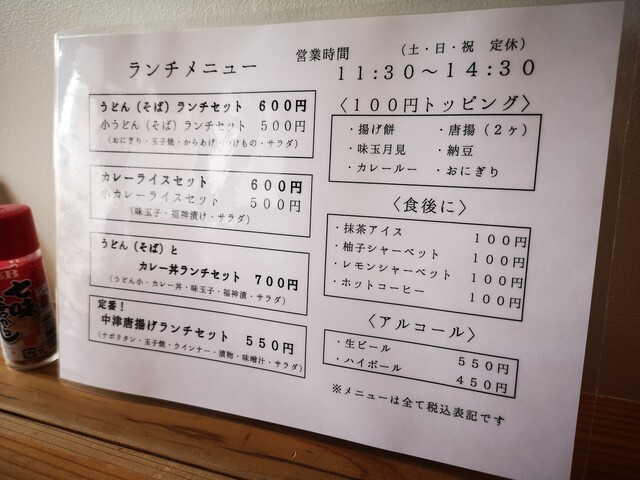 ランチメニュー
営業時間
(土・日・祝 定休)
11:30〜14:30
うどん(そば)ランチセット 600円
小うどん(そば)ランチセット 500円
(おにぎり・玉子焼・からあげ・つけもの・サラダ)
カレーライスセット 600円
小カレーライスセット 500円
(味玉子・福神漬け・サラダ)
うどん(そば)と
カレー丼ランチセット 700円
(うどん小・カレー丼・味玉子・福神漬・サラダ)
定番!
中津唐揚げランチセット 550円
(ナポリタン・玉子焼・ウインナー・漬物・味噌汁・サラダ)
〈100円トッピング〉
・揚げ餅 ・唐揚(2ヶ)
・味玉月見 ・納豆
・カレールー ・おにぎり
〈食後に〉
・抹茶アイス 100円
・柚子シャーベット 100円
・レモンシャーベット 100円
・ホットコーヒー 100円
〈アルコール〉
・生ビール 550円
・ハイボール 450円
※メニューは全て税込表記です
七味